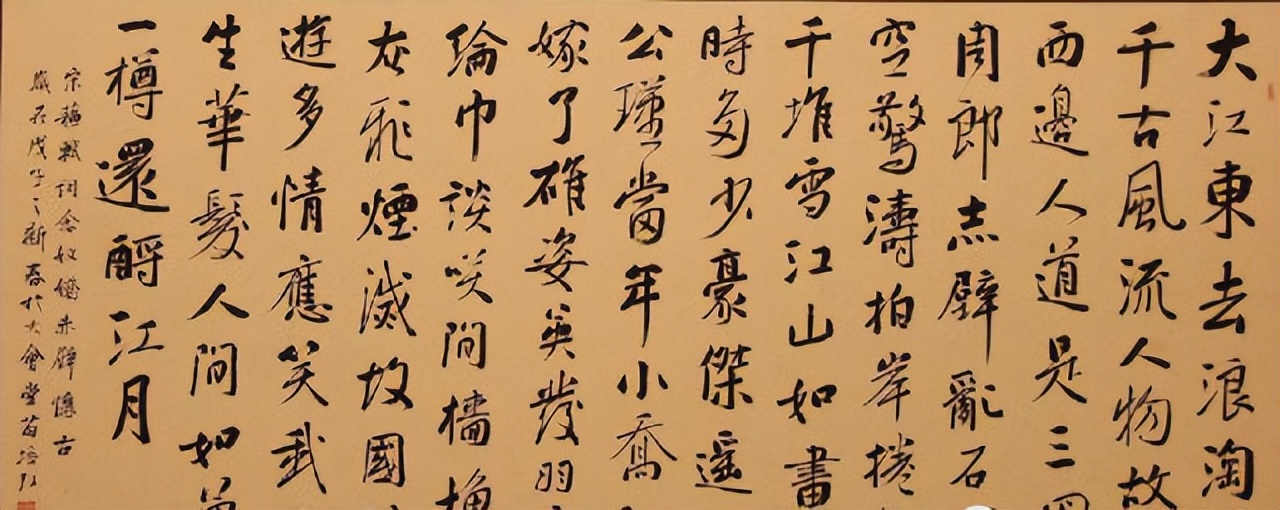 大江東去浪淘
千古風流人物故
西邊人道是三
周郎赤壁亂石
空驚濤拍岸捲
千堆雪江山如畫
時多少豪傑遥
公瑾當年小喬
嫁了雄姿英發羽
綸巾談咲間檣
灰飛煙滅故國
遊多情應笑我
生華髮人間如
一樽還酹江月
宋蘇軾詞念奴嬌赤壁懷古
歲在戊子之新春於大會堂苗培红